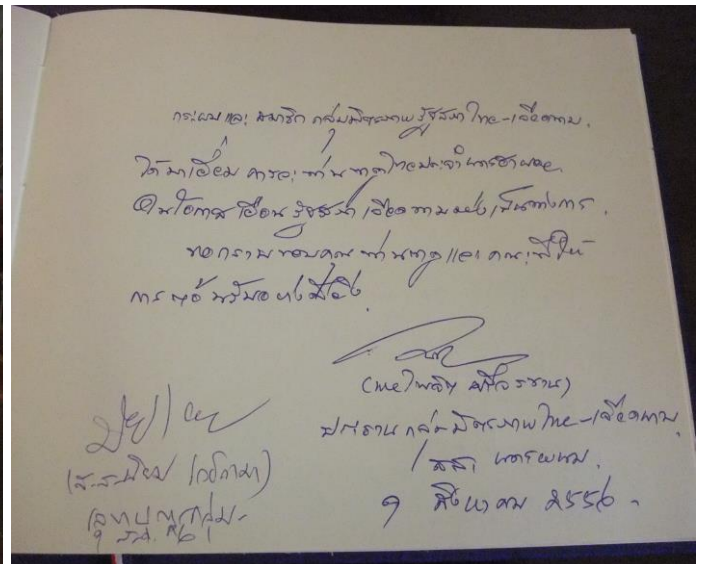 กระผมและสมาชิก กลุ่มมิตรภาพรัฐสภาไทย-เวียดนาม.
ได้มาเยี่ยมคารวะท่านทูตไทยประจำ
ในโอกาสเยือนรัฐสภาเวียดนามอย่างเป็นทางการ.
ขอกราบขอบคุณท่านทูตและคณะที่ให้
การต้อนรับอย่างดียิ่ง.
(นายไพจิต ศรีวรขาน)
ประธานกลุ่มมิตรภาพไทย-เวียดนาม.
/ สส. นครพนม.
๑ สิงหาคม ๒๕๕๖.